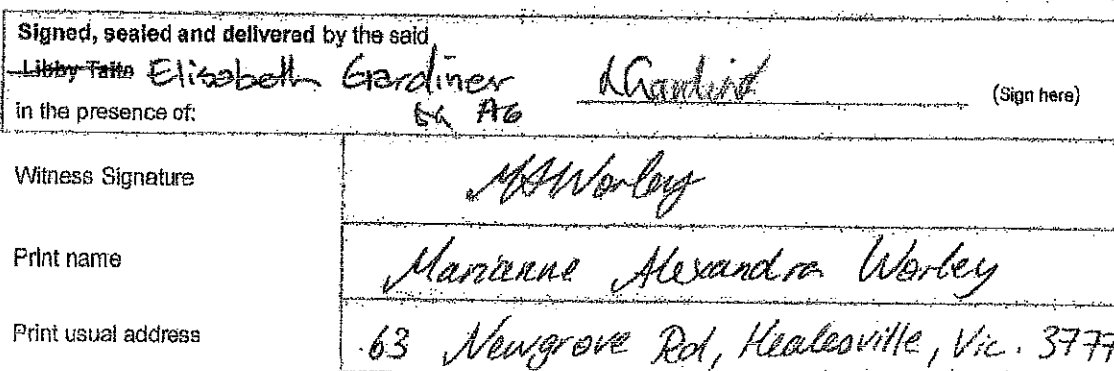 Signed, sealed and delivered by the said
Libby Taito Elisabeth Gardiner (Sign here)
in the presence of: EG AG
Witness Signature MAWorley
Print name Marianne Alexandra Worley
Print usual address 63 Newgrove Rd, Healesville, Vic. 3777